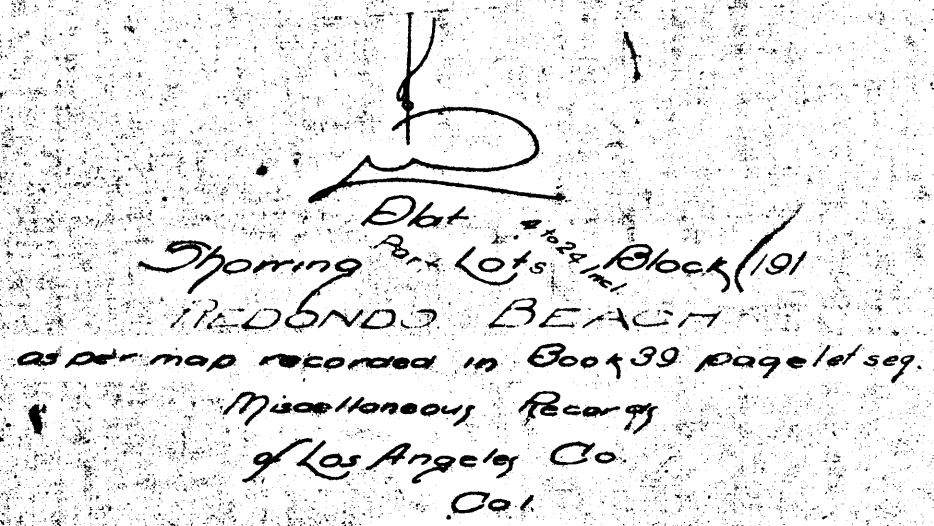 Plat
Showing Por. Lots 4 to 24 Incl. Block 191
REDONDO BEACH
as per map recorded in Book 39 page 1 et seq.
Miscellaneous Records
of Los Angeles Co.
Cal.